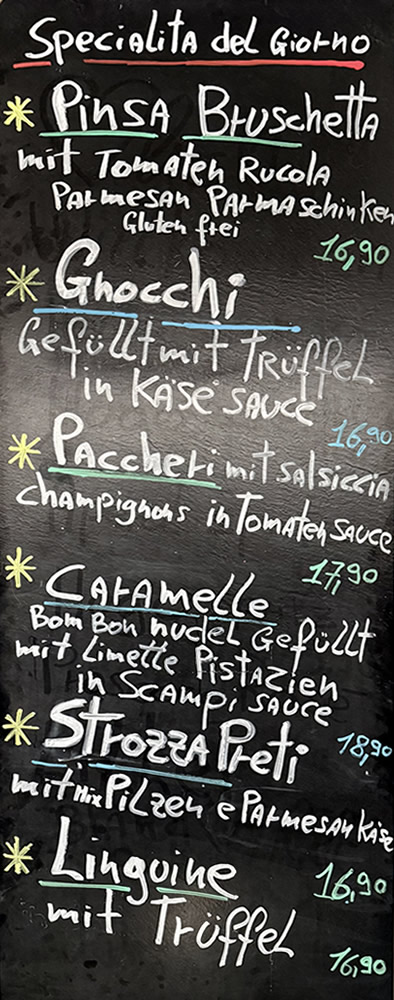 Specialita del Giorno
* Pinsa Bruschetta
mit Tomaten Rucola
Parmesan Parmaschinken
Gluten frei
16,90
* Gnocchi
Gefüllt mit Trüffel
in Käse sauce
16,90
* Paccheri mit salsiccia
champignons in Tomaten sauce
17,90
* Caramelle
Bom Bon nudel Gefüllt
mit Limette Pistazien
in Scampi sauce
* StrozzaPreti 18,90
mit Mix Pilzen e Parmesan Käse
16,90
* Linguine
mit Trüffel
16,90